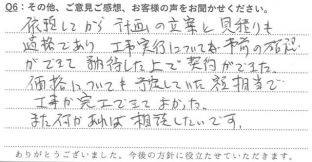 Q6：その他、ご意見ご感想、お客様の声をお聞かせください。
依頼してから計画の立案と見積りも
適格であり 工事実行についても事前の確認
ができて 納得した上で契約ができた。
価格についても予定していた額相当で
工事が完工できてよかった。
また何かあれば相談したいです。
ありがとうございました。今後の方針に役立たせていただきます。